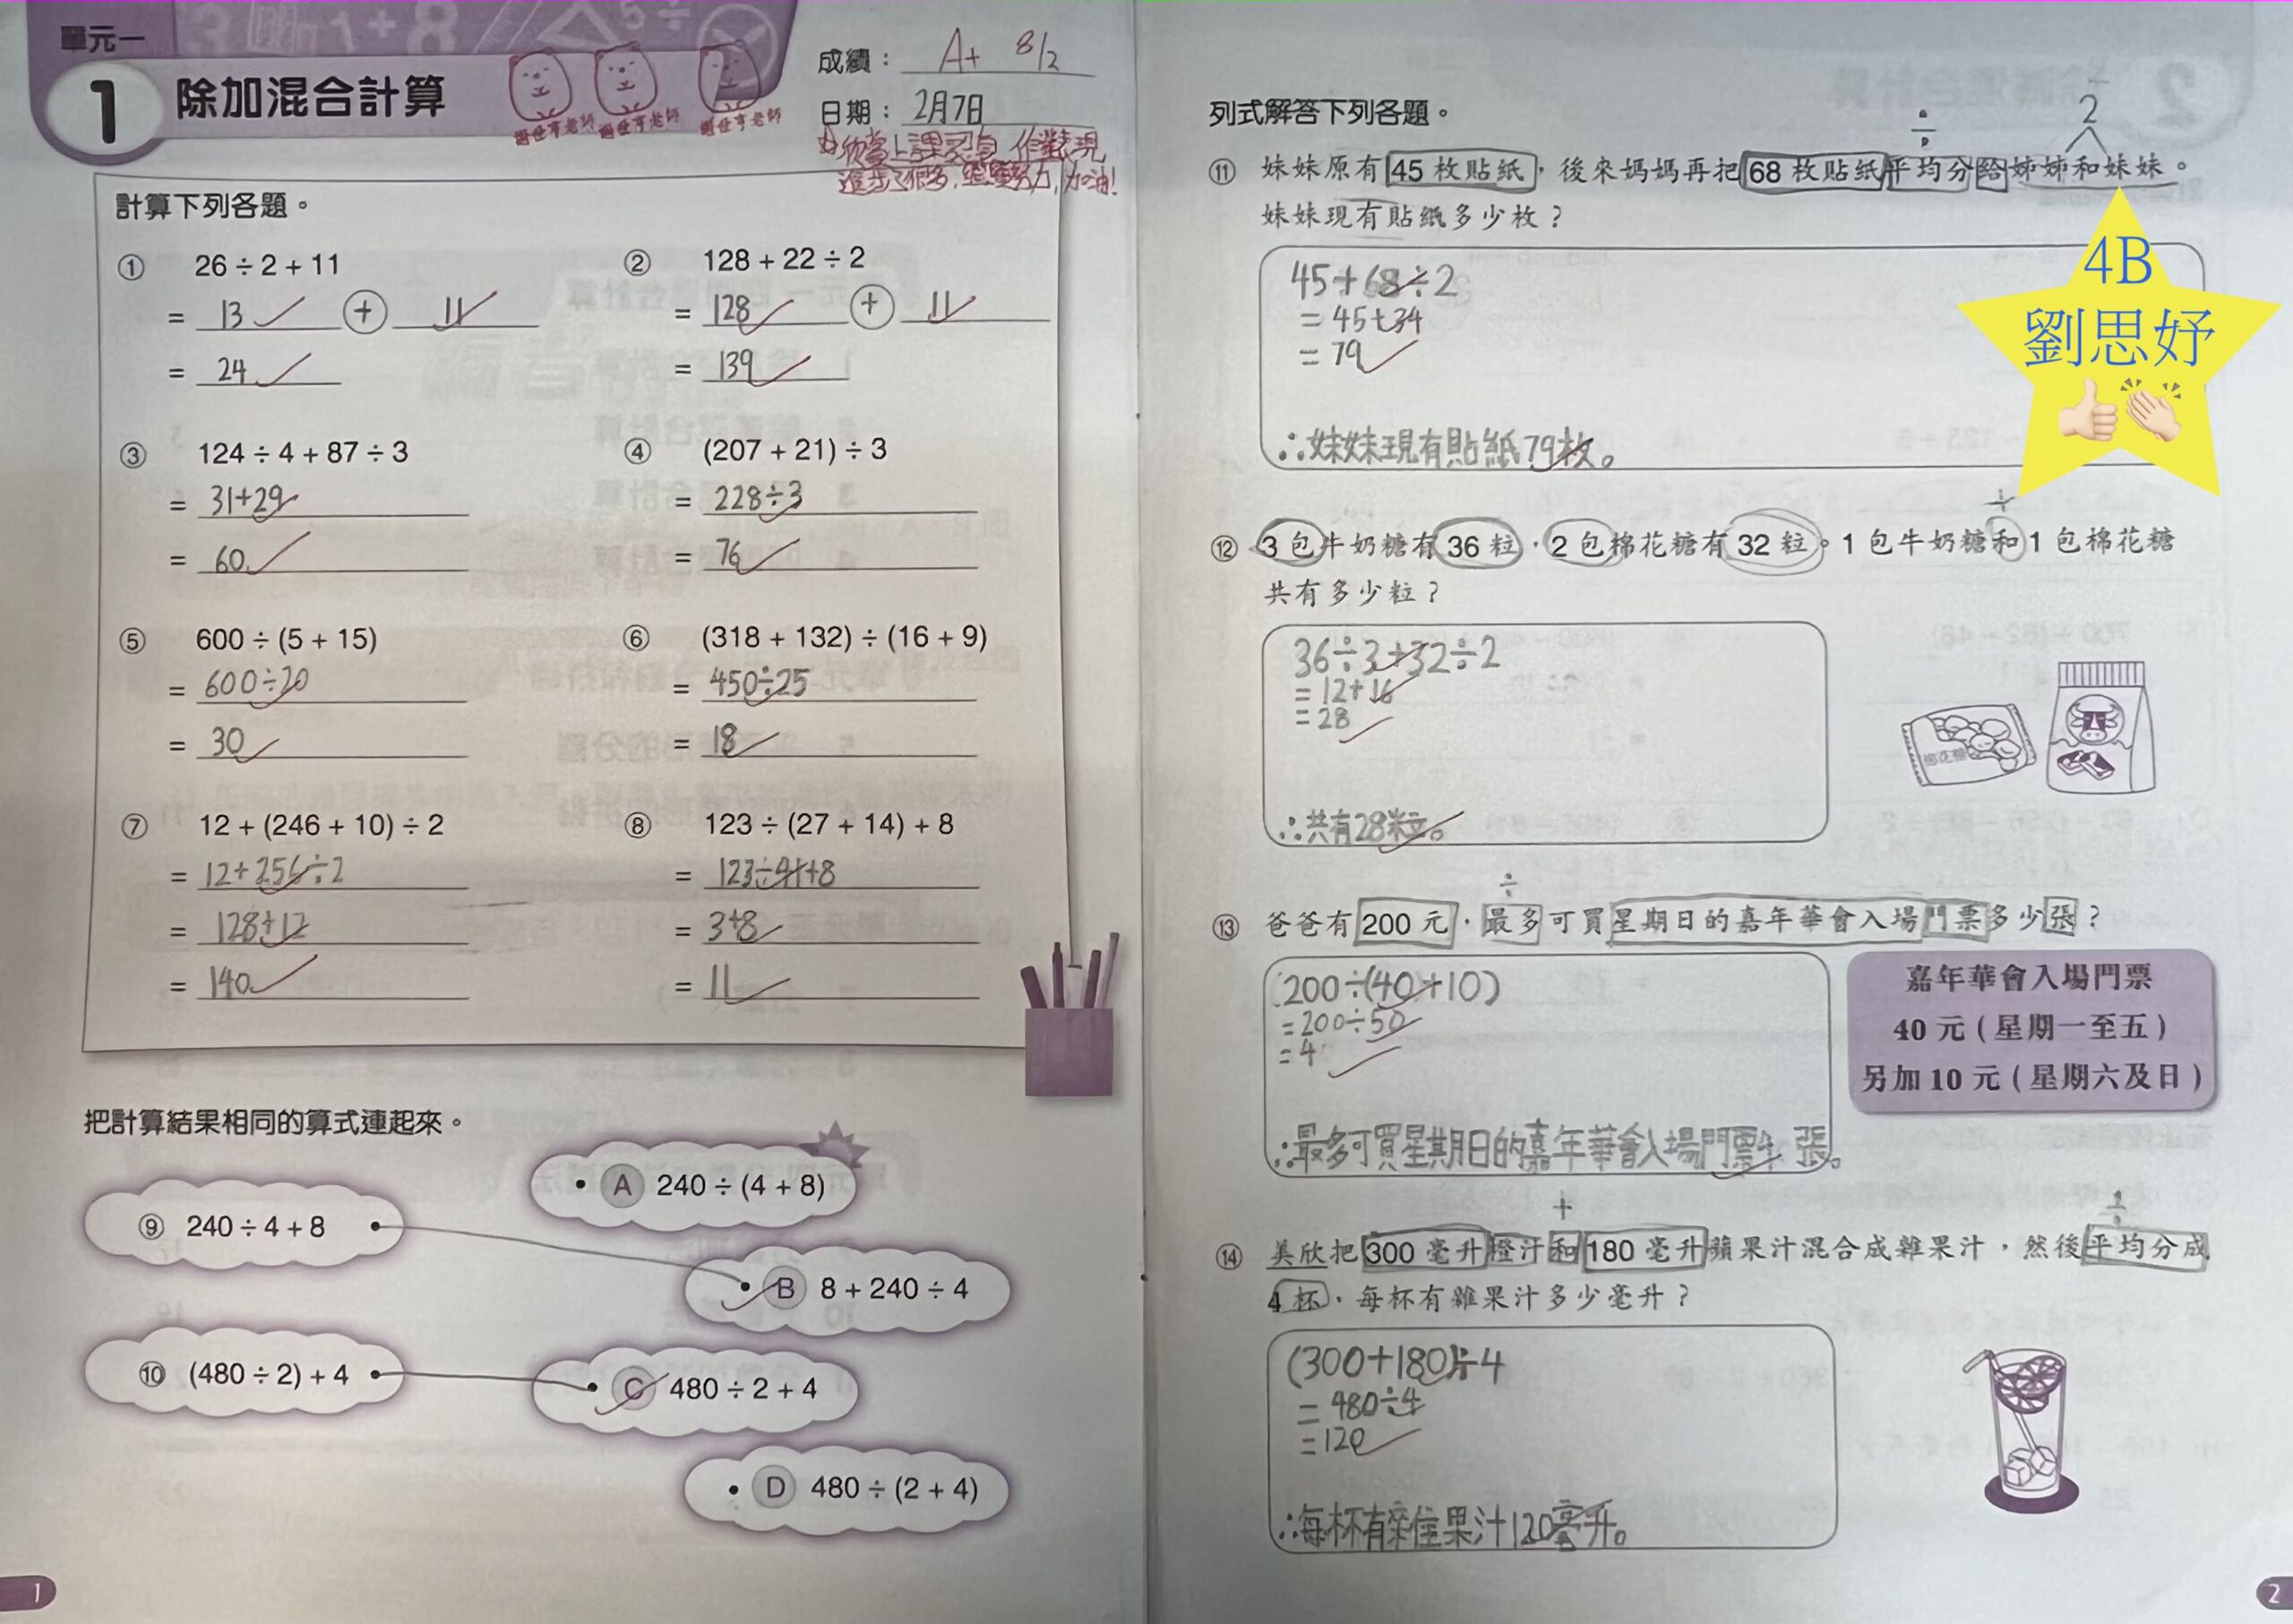 單元一
1 除加混合計算
成績： A+ 8/2
日期： 2月7日
謝世亨老師 謝世亨老師 謝世亨老師
欣賞上課認真，作業表現
進步了很多，繼續努力，加油！
計算下列各題。
① 26 ÷ 2 + 11
= 13 + 11
= 24
② 128 + 22 ÷ 2
= 128 + 11
= 139
③ 124 ÷ 4 + 87 ÷ 3
= 31+29
= 60
④ (207 + 21) ÷ 3
= 228÷3
= 76
⑤ 600 ÷ (5 + 15)
= 600÷20
= 30
⑥ (318 + 132) ÷ (16 + 9)
= 450÷25
= 18
⑦ 12 + (246 + 10) ÷ 2
= 12+256÷2
= 128+12
= 140
⑧ 123 ÷ (27 + 14) + 8
= 123÷41+8
= 3+8
= 11
把計算結果相同的算式連起來。
⑨ 240 ÷ 4 + 8
⑩ (480 ÷ 2) + 4
A 240 ÷ (4 + 8)
B 8 + 240 ÷ 4
C 480 ÷ 2 + 4
D 480 ÷ (2 + 4)
1
列式解答下列各題。
÷ 2
⑪ 妹妹原有 45 枚貼紙，後來媽媽再把 68 枚貼紙平均分給姊姊和妹妹。
妹妹現有貼紙多少枚？
45+68÷2
= 45+34
= 79
∴妹妹現有貼紙79枚。
4B
劉思妤
+
⑫ 3 包牛奶糖有 36 粒，2 包棉花糖有 32 粒。1 包牛奶糖和 1 包棉花糖
共有多少粒？
36÷3+32÷2
= 12+16
= 28
∴共有28粒。
棉花糖
÷
⑬ 爸爸有 200 元，最多可買星期日的嘉年華會入場門票多少張？
200÷(40+10)
=200÷50
=4
∴最多可買星期日的嘉年華會入場門票4張。
嘉年華會入場門票
40 元 ( 星期一至五 )
另加 10 元 ( 星期六及日 )
+ ÷
⑭ 美欣把 300 毫升橙汁和 180 毫升蘋果汁混合成雜果汁，然後平均分成
4 杯，每杯有雜果汁多少毫升？
(300+180)÷4
= 480÷4
=120
∴每杯有雜果汁120毫升。
2